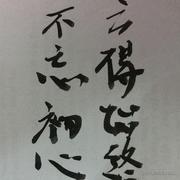 方得始终
不忘初心